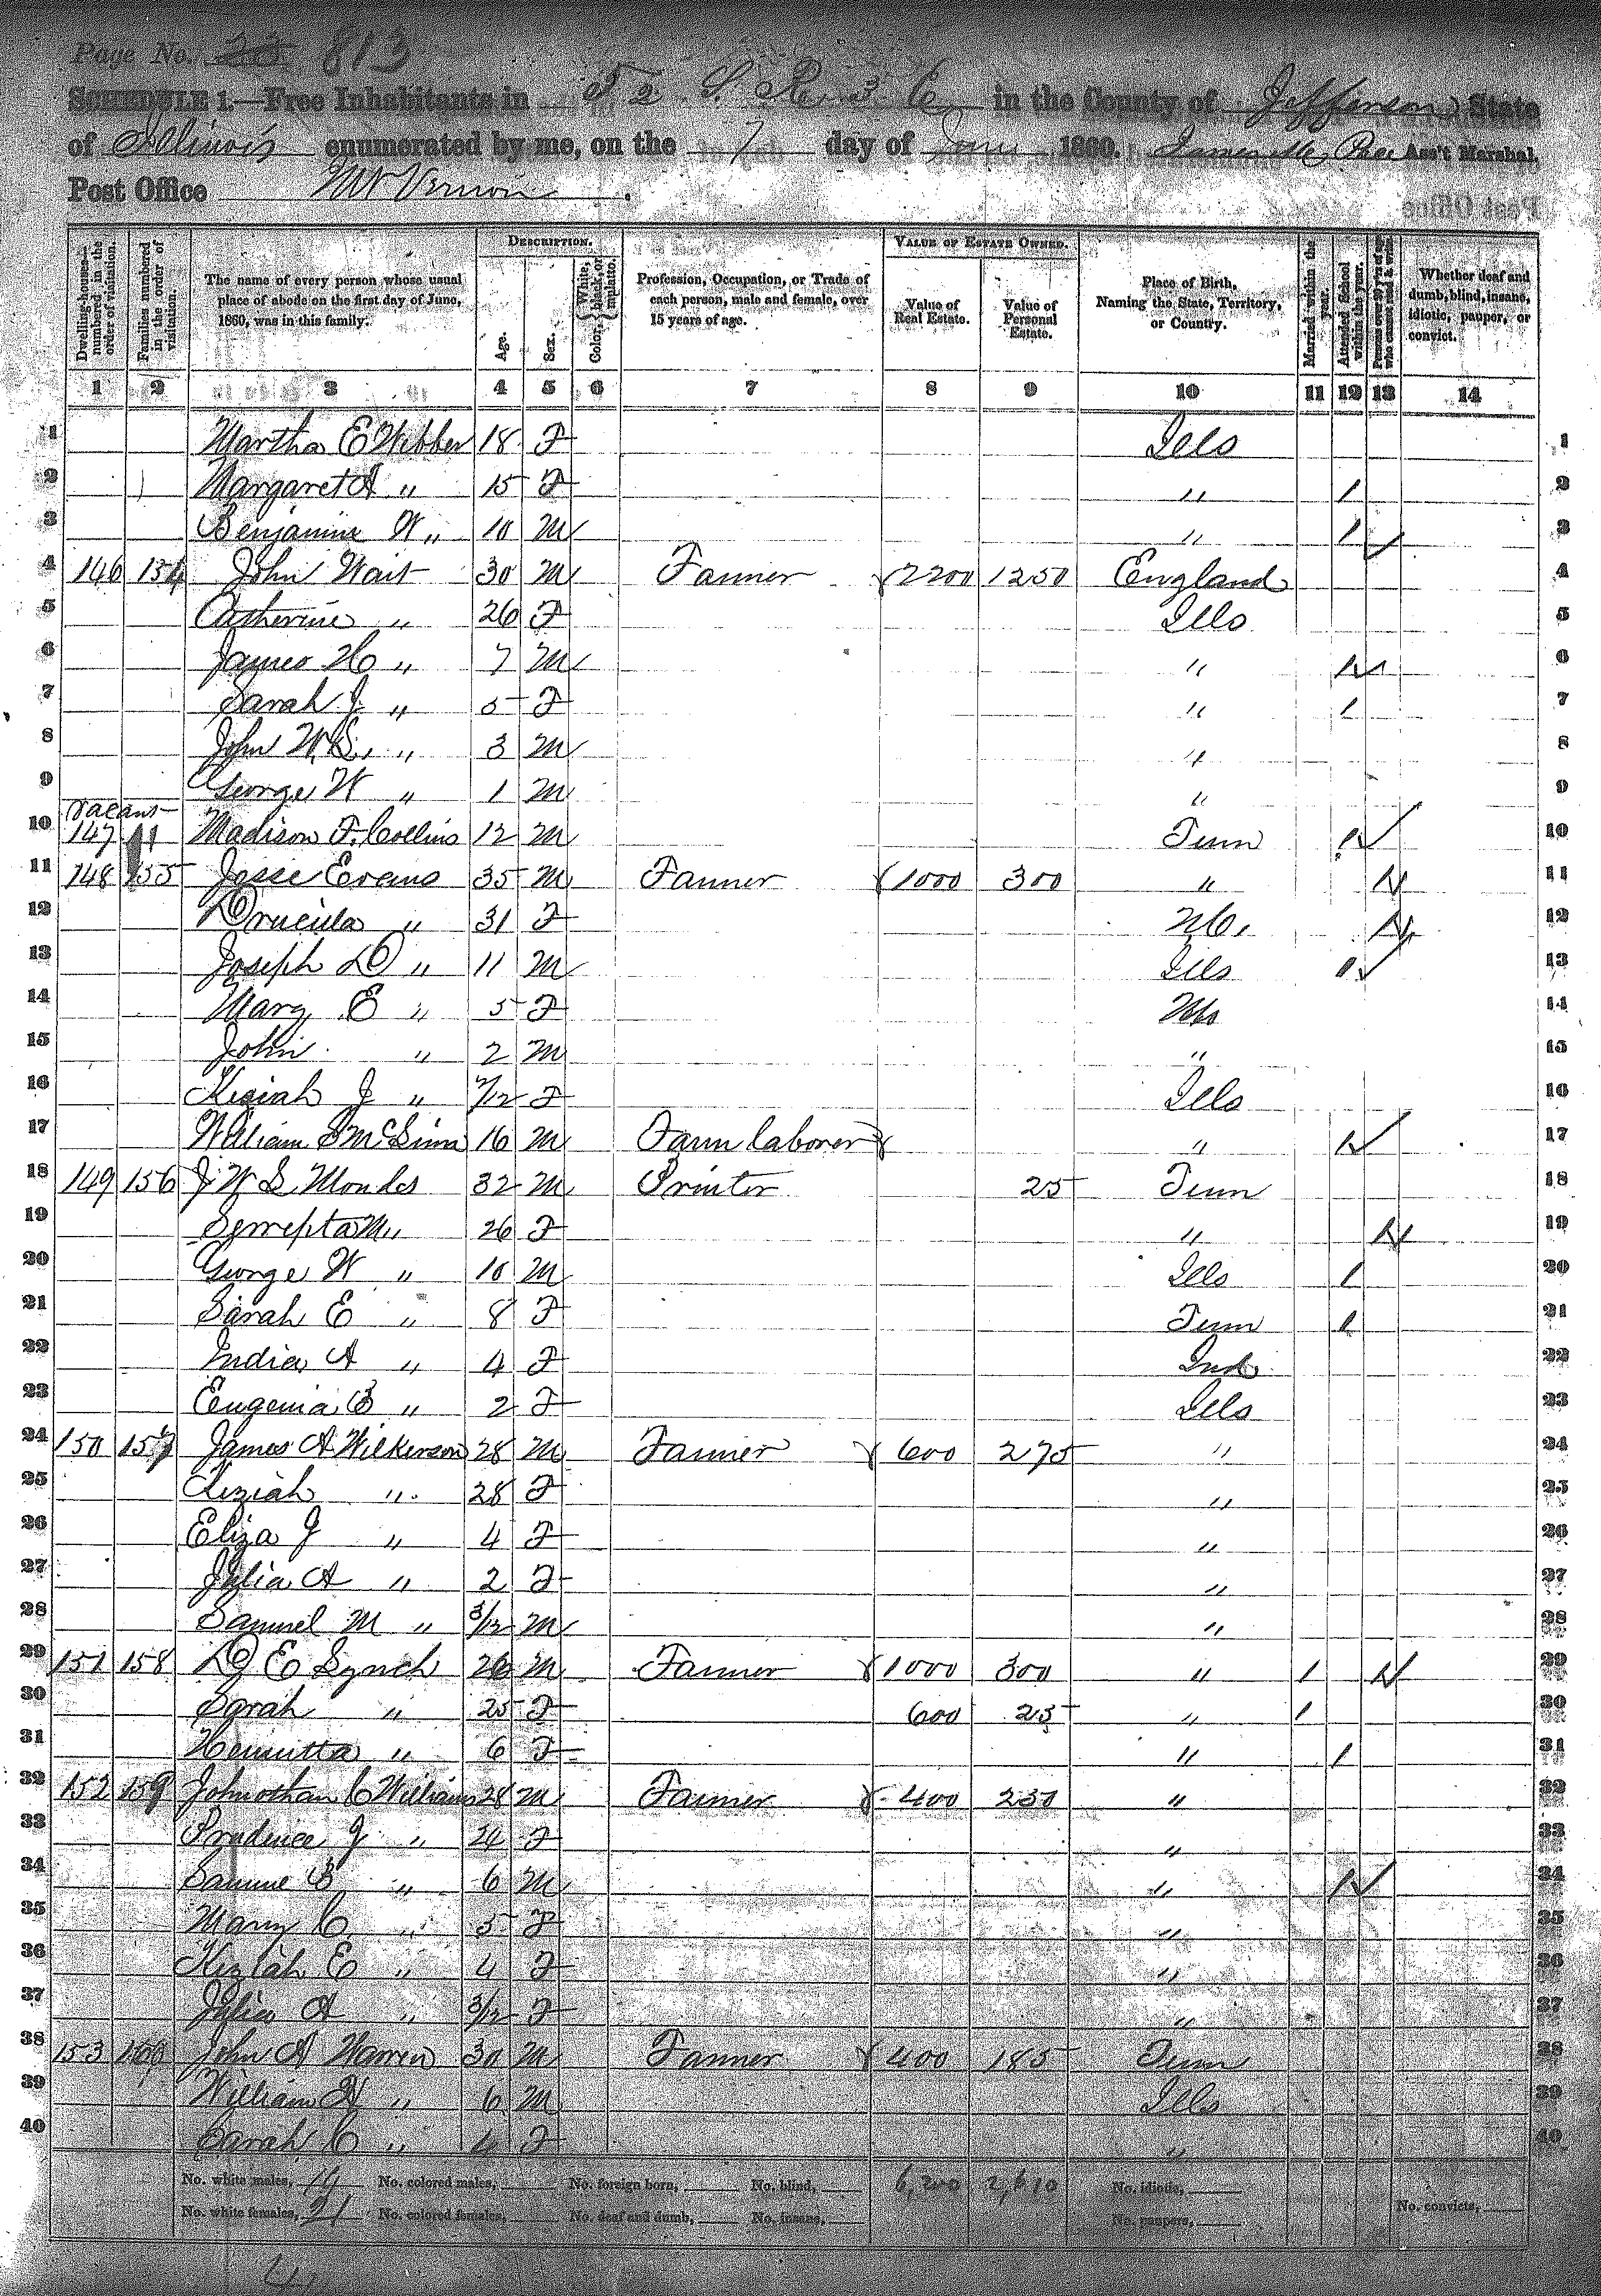 Page No. 23 813
SCHEDULE 1.—Free Inhabitants in T 2 S. R. 3 E. in the County of Jefferson State
of Illinois enumerated by me, on the 7 day of June 1860. James M. Pace Ass't Marshal.
Post Office Mt Vernon.
DESCRIPTION. VALUE OF ESTATE OWNED.
Dwelling-houses—numbered in the order of visitation. Families numbered in the order of visitation. The name of every person whose usual place of abode on the first day of June, 1860, was in this family. Age. Sex. Color, {White, black, or mulatto. Profession, Occupation, or Trade of each person, male and female, over 15 years of age. Value of Real Estate. Value of Personal Estate. Place of Birth, Naming the State, Territory, or Country. Married within the year. Attended School within the year. Persons over 20 y'rs of age who cannot read & write. Whether deaf and dumb, blind, insane, idiotic, pauper, or convict.
1 2 3 4 5 6 7 8 9 10 11 12 13 14
1 Martha E Webber 18 F Ills 1
2 Margaret A " 15 F " / 2
3 Benjamin W " 10 M " / 3
4 146 154 John Wait 30 M Farmer 2200 1250 England 4
5 Catherine " 26 F Ills 5
6 James H " 7 M " / 6
7 Sarah J " 5 F " / 7
8 John W.S. " 3 M " 8
9 George W " 1 M " 9
vacant
10 147 11 Madison F. Collins 12 M Tenn / 10
11 148 155 Jesse Evans 35 M Farmer 1000 300 " / 11
12 Drucilla " 31 F / 12
13 Joseph D " 11 M Ills / 13
14 Mary E " 5 F Mo 14
15 John " 2 M " 15
16 Kisiah J " 7/12 F Ills 16
17 William S 16 M Farm laborer " / 17
18 149 156 J W S 32 M Printer 25 Tenn 18
19 M " 26 F " / 19
20 George W " 10 M Ills / 20
21 Sarah E " 8 F Tenn / 21
22 India A " 4 F Ind 22
23 Eugenia B " 2 F Ills 23
24 150 157 James A Wilkerson 28 M Farmer 600 275 " 24
25 Kiziah " 28 F " 25
26 Eliza J " 4 F " 26
27 Julia A " 2 F " 27
28 Samuel M " 3/12 M " 28
29 151 158 D E Lynch 26 M Farmer 1000 300 " / / 29
30 Sarah " 25 F 600 25 " / 30
31 Henrietta " 6 F " / 31
32 152 159 Johnothan C Williams 28 M Farmer 400 250 " 32
33 Prudence J " 24 F " 33
34 B " 6 M " / 34
35 Mary C " 5 F " 35
36 Kiziah E " 4 F " 36
37 Julia A " 3/12 F " 37
38 153 160 John A Warren 30 M Farmer 400 185 Tenn 38
39 William H " 6 M Ills 39
40 Sarah C " 4 F " 40
No. white males, 19 No. colored males, No. foreign born, No. blind, 6,200 2,610 No. idiotic,
No. white females, 21 No. colored females, No. deaf and dumb, No. insane, No. paupers, No. convicts,